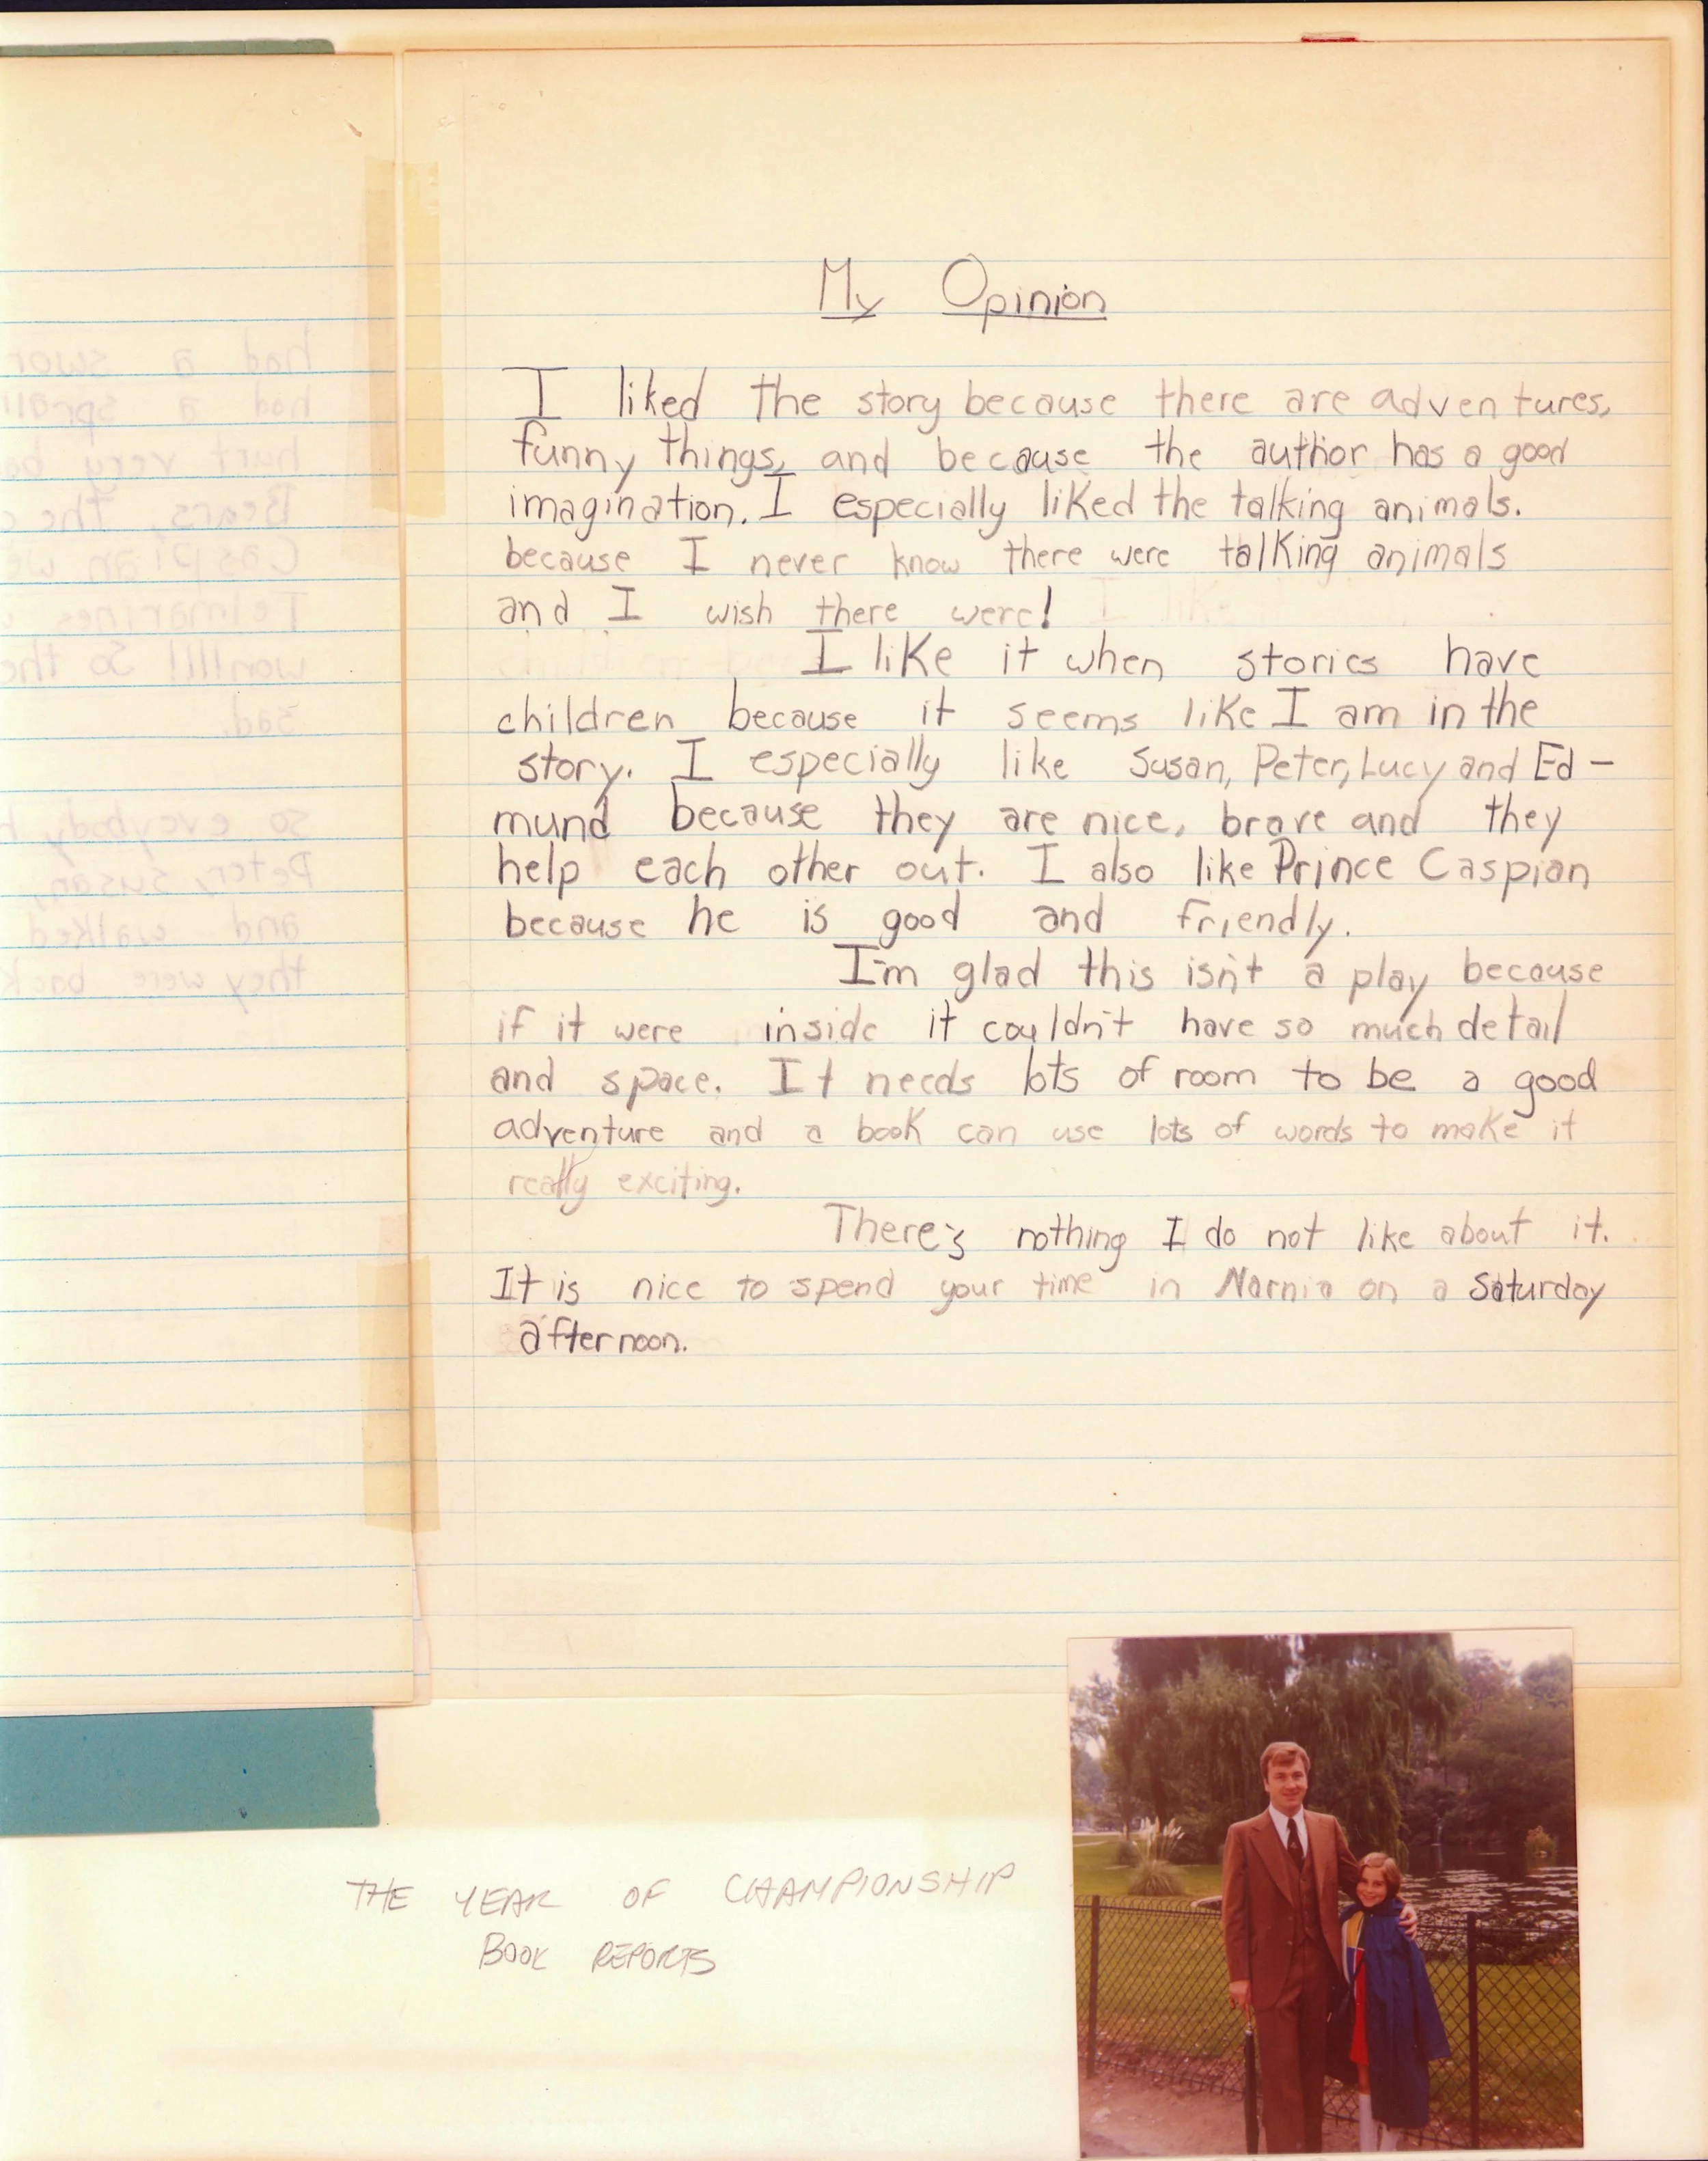 My Opinion
I liked the story because there are adventures,
funny things, and because the author has a good
imagination. I especially liked the talking animals.
because I never know there were talking animals
and I wish there were!
I like it when stories have
children because it seems like I am in the
story. I especially like Susan, Peter, Lucy and Ed-
mund because they are nice, brave and they
help each other out. I also like Prince Caspian
because he is good and friendly.
I'm glad this isn't a play because
if it were inside it couldn't have so much detail
and space. It needs lots of room to be a good
adventure and a book can use lots of words to make it
really exciting.
There's nothing I do not like about it.
It is nice to spend your time in Narnia on a Saturday
afternoon.
had a swor
had a sprai
hurt very ba
Bears, the
Caspian we
Telmarines
won!!!! So the
sad.
so everybody h
Peter, Susan,
and walked
they were back
THE YEAR OF CHAMPIONSHIP
BOOK REPORTS